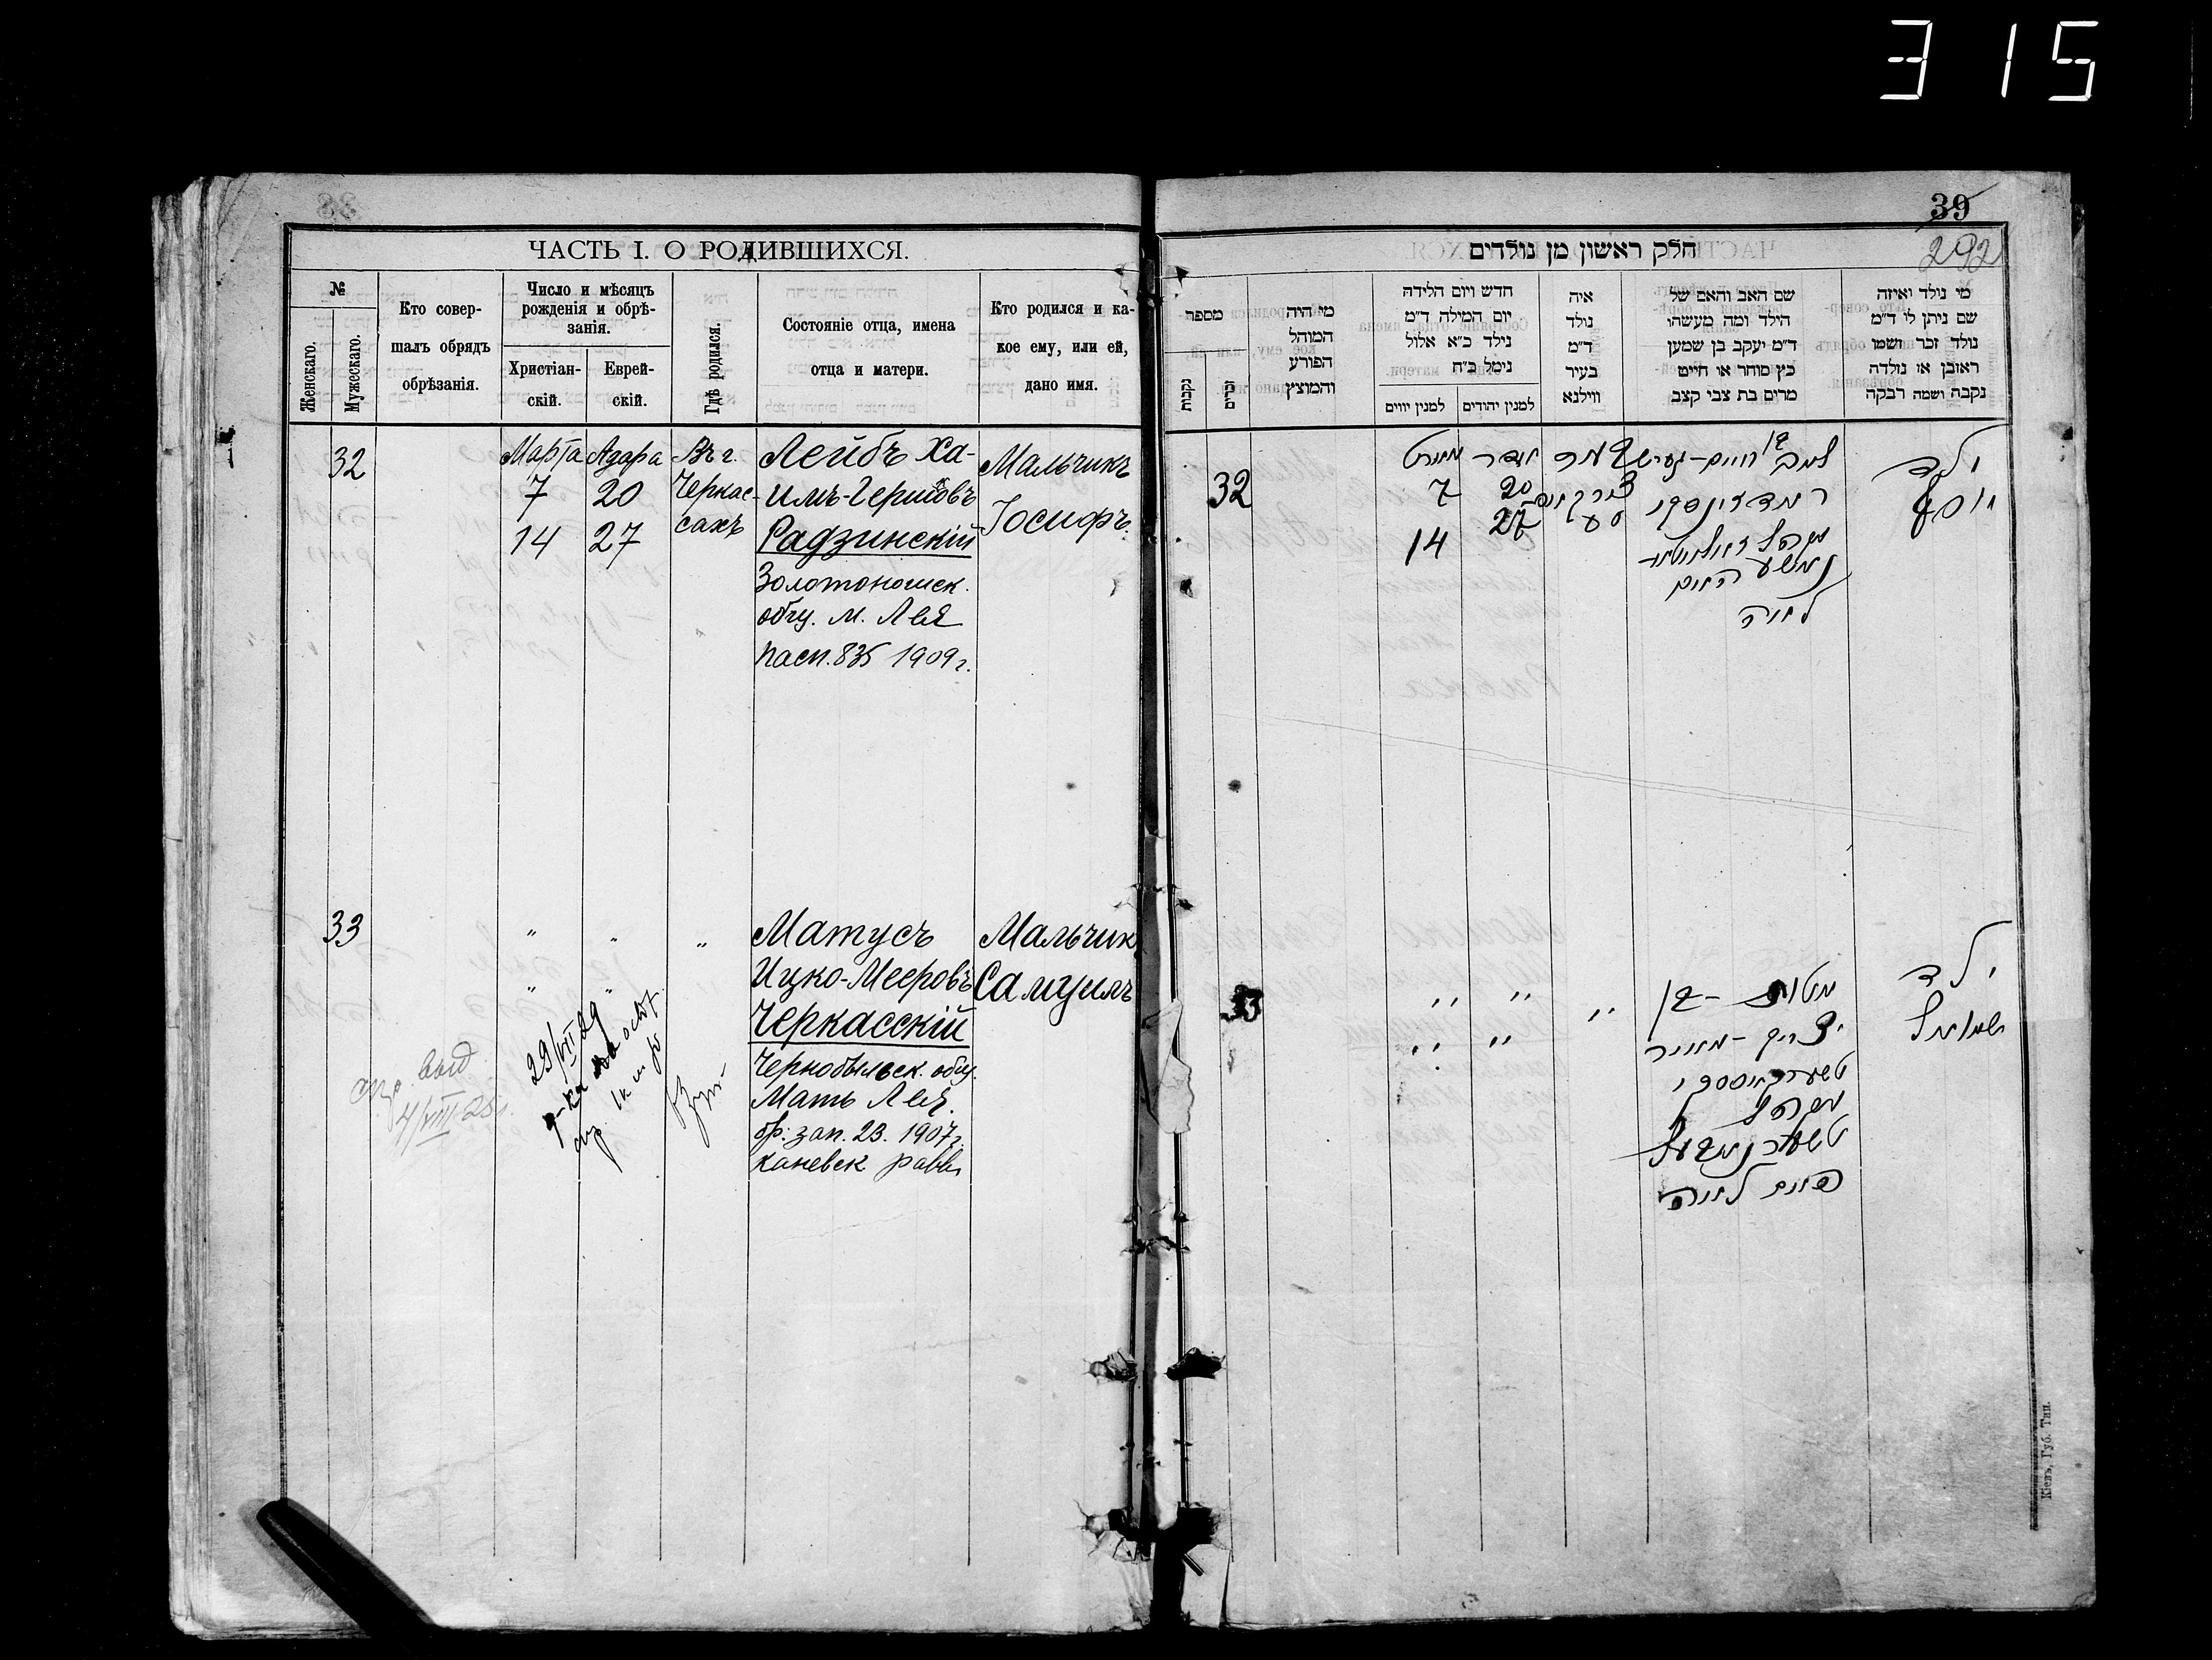 315
39
292
ЧАСТЬ I. О РОДИВШИХСЯ.
№
Женскаго.
Мужескаго.
Кто совер-
шалъ обрядъ
обрѣзанія.
Число и мѣсяцъ
рожденія и обрѣ-
занія.
Христіан-
скій.
Еврей-
скій.
Гдѣ родился.
Состояніе отца, имена
отца и матери.
Кто родился и ка-
кое ему, или ей,
дано имя.
32
Марта
7
14
Адара
20
27
Въ г.
Черкас-
сахъ
Лейбъ Ха-
имъ-Гершовъ
Радзинскій
Золотоношск.
общ. м. Лея
пасп. 835 1909 г.
Мальчикъ
Іосифъ
33
" " "
" "
Матусъ
Ицко-Мееровъ
Черкасскій
Чернобыльск. общ.
Мать Лея.
бр: зап. 23. 1907 г.
Каневск равв
Мальчик
Самуилъ
выд
4/VIII-25 г.
29/VII 29
חלק ראשון מן נולדים
מספר
נקבות
זכרים
מי היה
המוהל
הפורע
והמוצץ
חדש ויום הלידה
יום המילה ד"מ
נילד כ"א אלול
נימל כ"ח
למנין יווים
למנין יהודים
איה
נולד
ד"מ
בעיר
ווילנא
שם האב והאם של
הילד ומה מעשהו
ד"מ יעקב בן שמען
כץ סוחר או חייט
מרים בת צבי קצב
מי נולד ואיזה
שם ניתן לו ד"מ
נולד זכר ושמו
ראובן או נולדה
נקבה ושמה רבקה
32
מארט
7
14
אדר
20
27
לאה
ילד
יוסף
33
" " "
" "
מטוס - בן
יצחק - מאיר
טשערקאסקי
ילד
שמואל
Кіевъ, Губ. Тип.